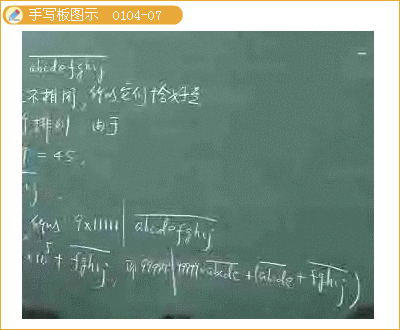 手写板图示 0104-07
abcdefghij
不相同,所以它们恰好是
排列 由于
= 45.
9×11111 | abcdefghij
×10⁵ + fghij, 即 99999 | 99999×abcde + (abcde + fghij)